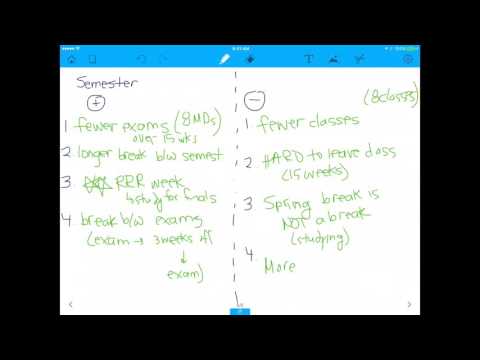 9:51 AM
Semester
+
1 fewer exams (8 MDs)
over 15 wks
2 longer break b/w semest
3 RRR week
↳ study for finals
4 break b/w exams
(exam → 3 weeks off
↓
exam)
−
(8 classes)
1 fewer classes
2 HARD to leave class
(15 weeks)
3 Spring break is
NOT a break
(studying)
4.
More